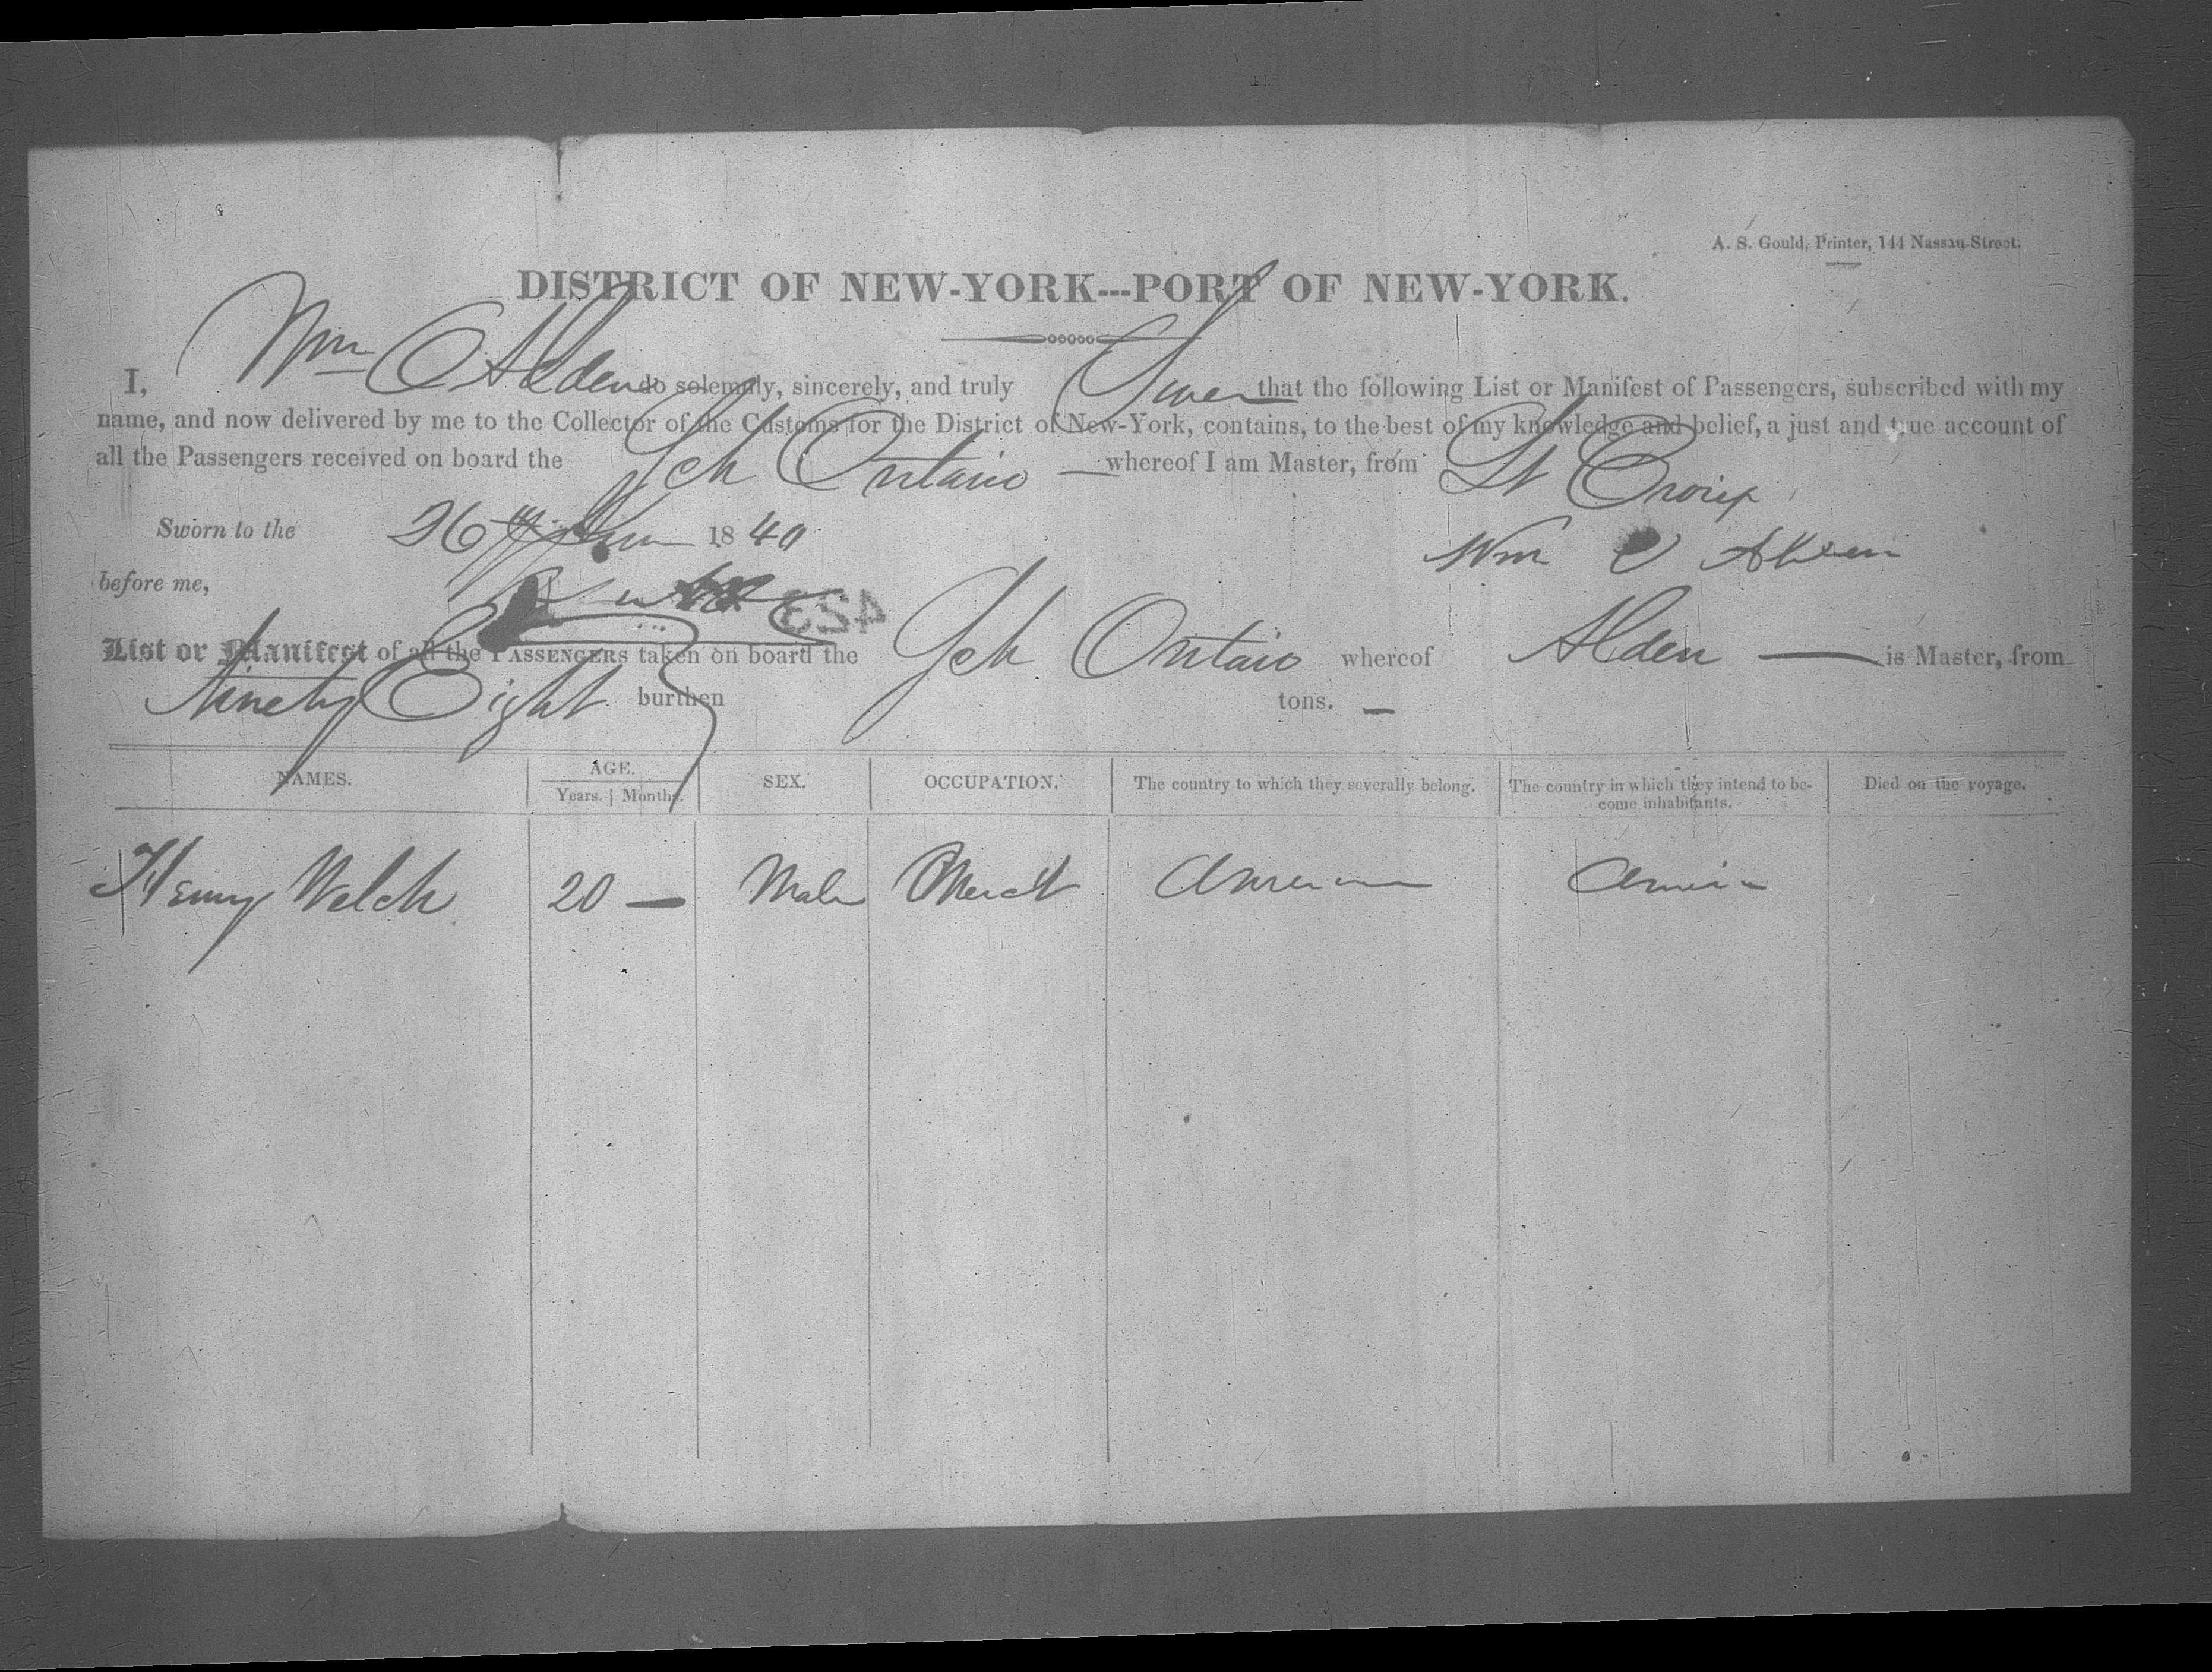 A. S. Gould, Printer, 144 Nassau-Street.
DISTRICT OF NEW-YORK---PORT OF NEW-YORK.
I, Wm C Alden do solemnly, sincerely, and truly Swear that the following List or Manifest of Passengers, subscribed with my
name, and now delivered by me to the Collector of the Customs for the District of New-York, contains, to the best of my knowledge and belief, a just and true account of
all the Passengers received on board the Sch Ontario whereof I am Master, from St Croix
Sworn to the 26th June 1840 Wm C Alden
before me,
423
List or Manifest of all the PASSENGERS taken on board the Sch Ontario whereof Alden — is Master, from
burthen Ninety Eight tons. —
NAMES. AGE. SEX. OCCUPATION. The country to which they severally belong. The country in which they intend to be- Died on the voyage.
Years. Months. come inhabitants.
Henry Welch 20 — Male Mercht American America